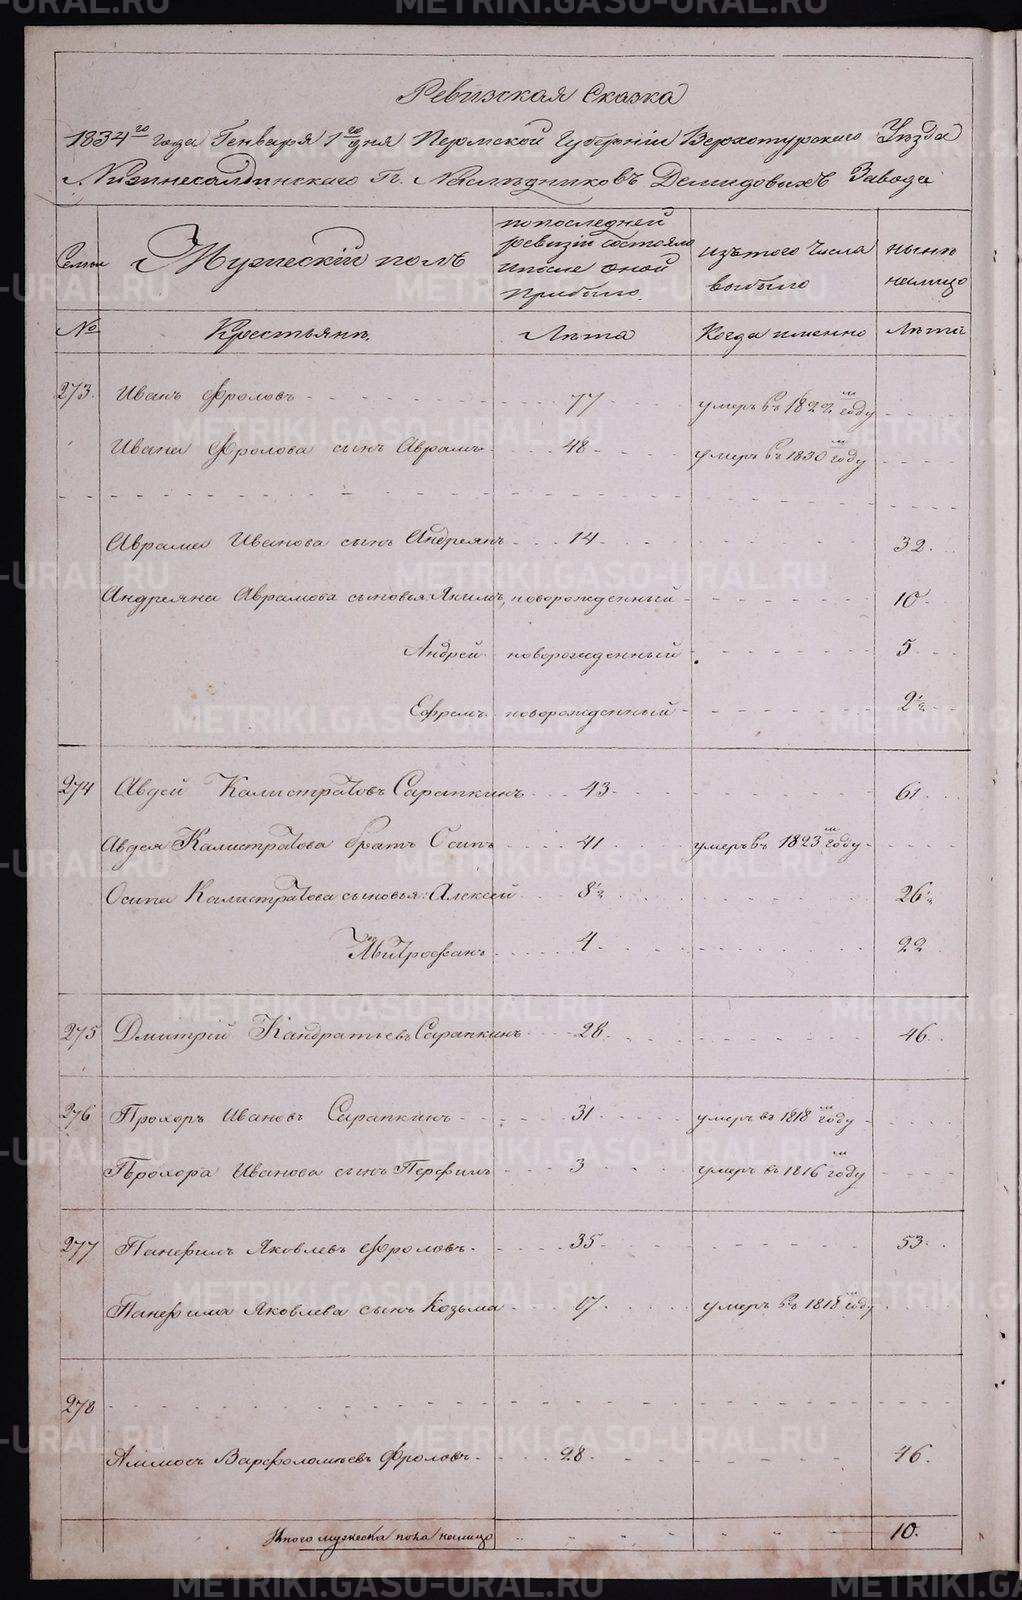 Ревизская Сказка
1834го года Генваря 1го дня Пермской Губернiи Верхотурского Уѣзда
Нижнесалдинскаго Гг. Наслѣдниковъ Демидовыхъ Завода
Семьи
Мужескiй полъ
по последней ревизiи состояло и после оной прибыло
изъ того числа выбыло
нынѣ налицо
№
Крестьянъ.
Лѣта
Когда именно
Лѣта
273. Иванъ Фроловъ 77 умеръ въ 1822м году
Ивана Фролова сынъ Аврамъ 48 умеръ въ 1830м году
Аврама Иванова сынъ Андреянъ 14 32.
Андреяна Аврамова сыновья: Якимъ, новорожденный 10
Андрей новорожденный 5
Ефремъ новорожденный 2½
274 Авдей Калистратовъ Сарапкинъ 43 61
Авдея Калистратова братъ Осипъ 41 умеръ въ 1823м году
Осипа Калистратова сыновья: Алексей 8½ 26½
Митрофанъ 4 22
275 Дмитрiй Кандратьевъ Сарапкинъ 28. 46
276 Прохоръ Ивановъ Сарапкинъ 31 умеръ въ 1818м году
Прохора Иванова сынъ Перфилъ 3 умеръ въ 1816м году
277 Панфилъ Яковлевъ Фроловъ 35 53
Панфила Яковлева сынъ Козьма 17. умеръ въ 1818м году
278
Аммосъ Варфоломѣевъ Фроловъ 28 46.
Итого мужеска пола налицо 10.
METRIKI.GASO-URAL.RU